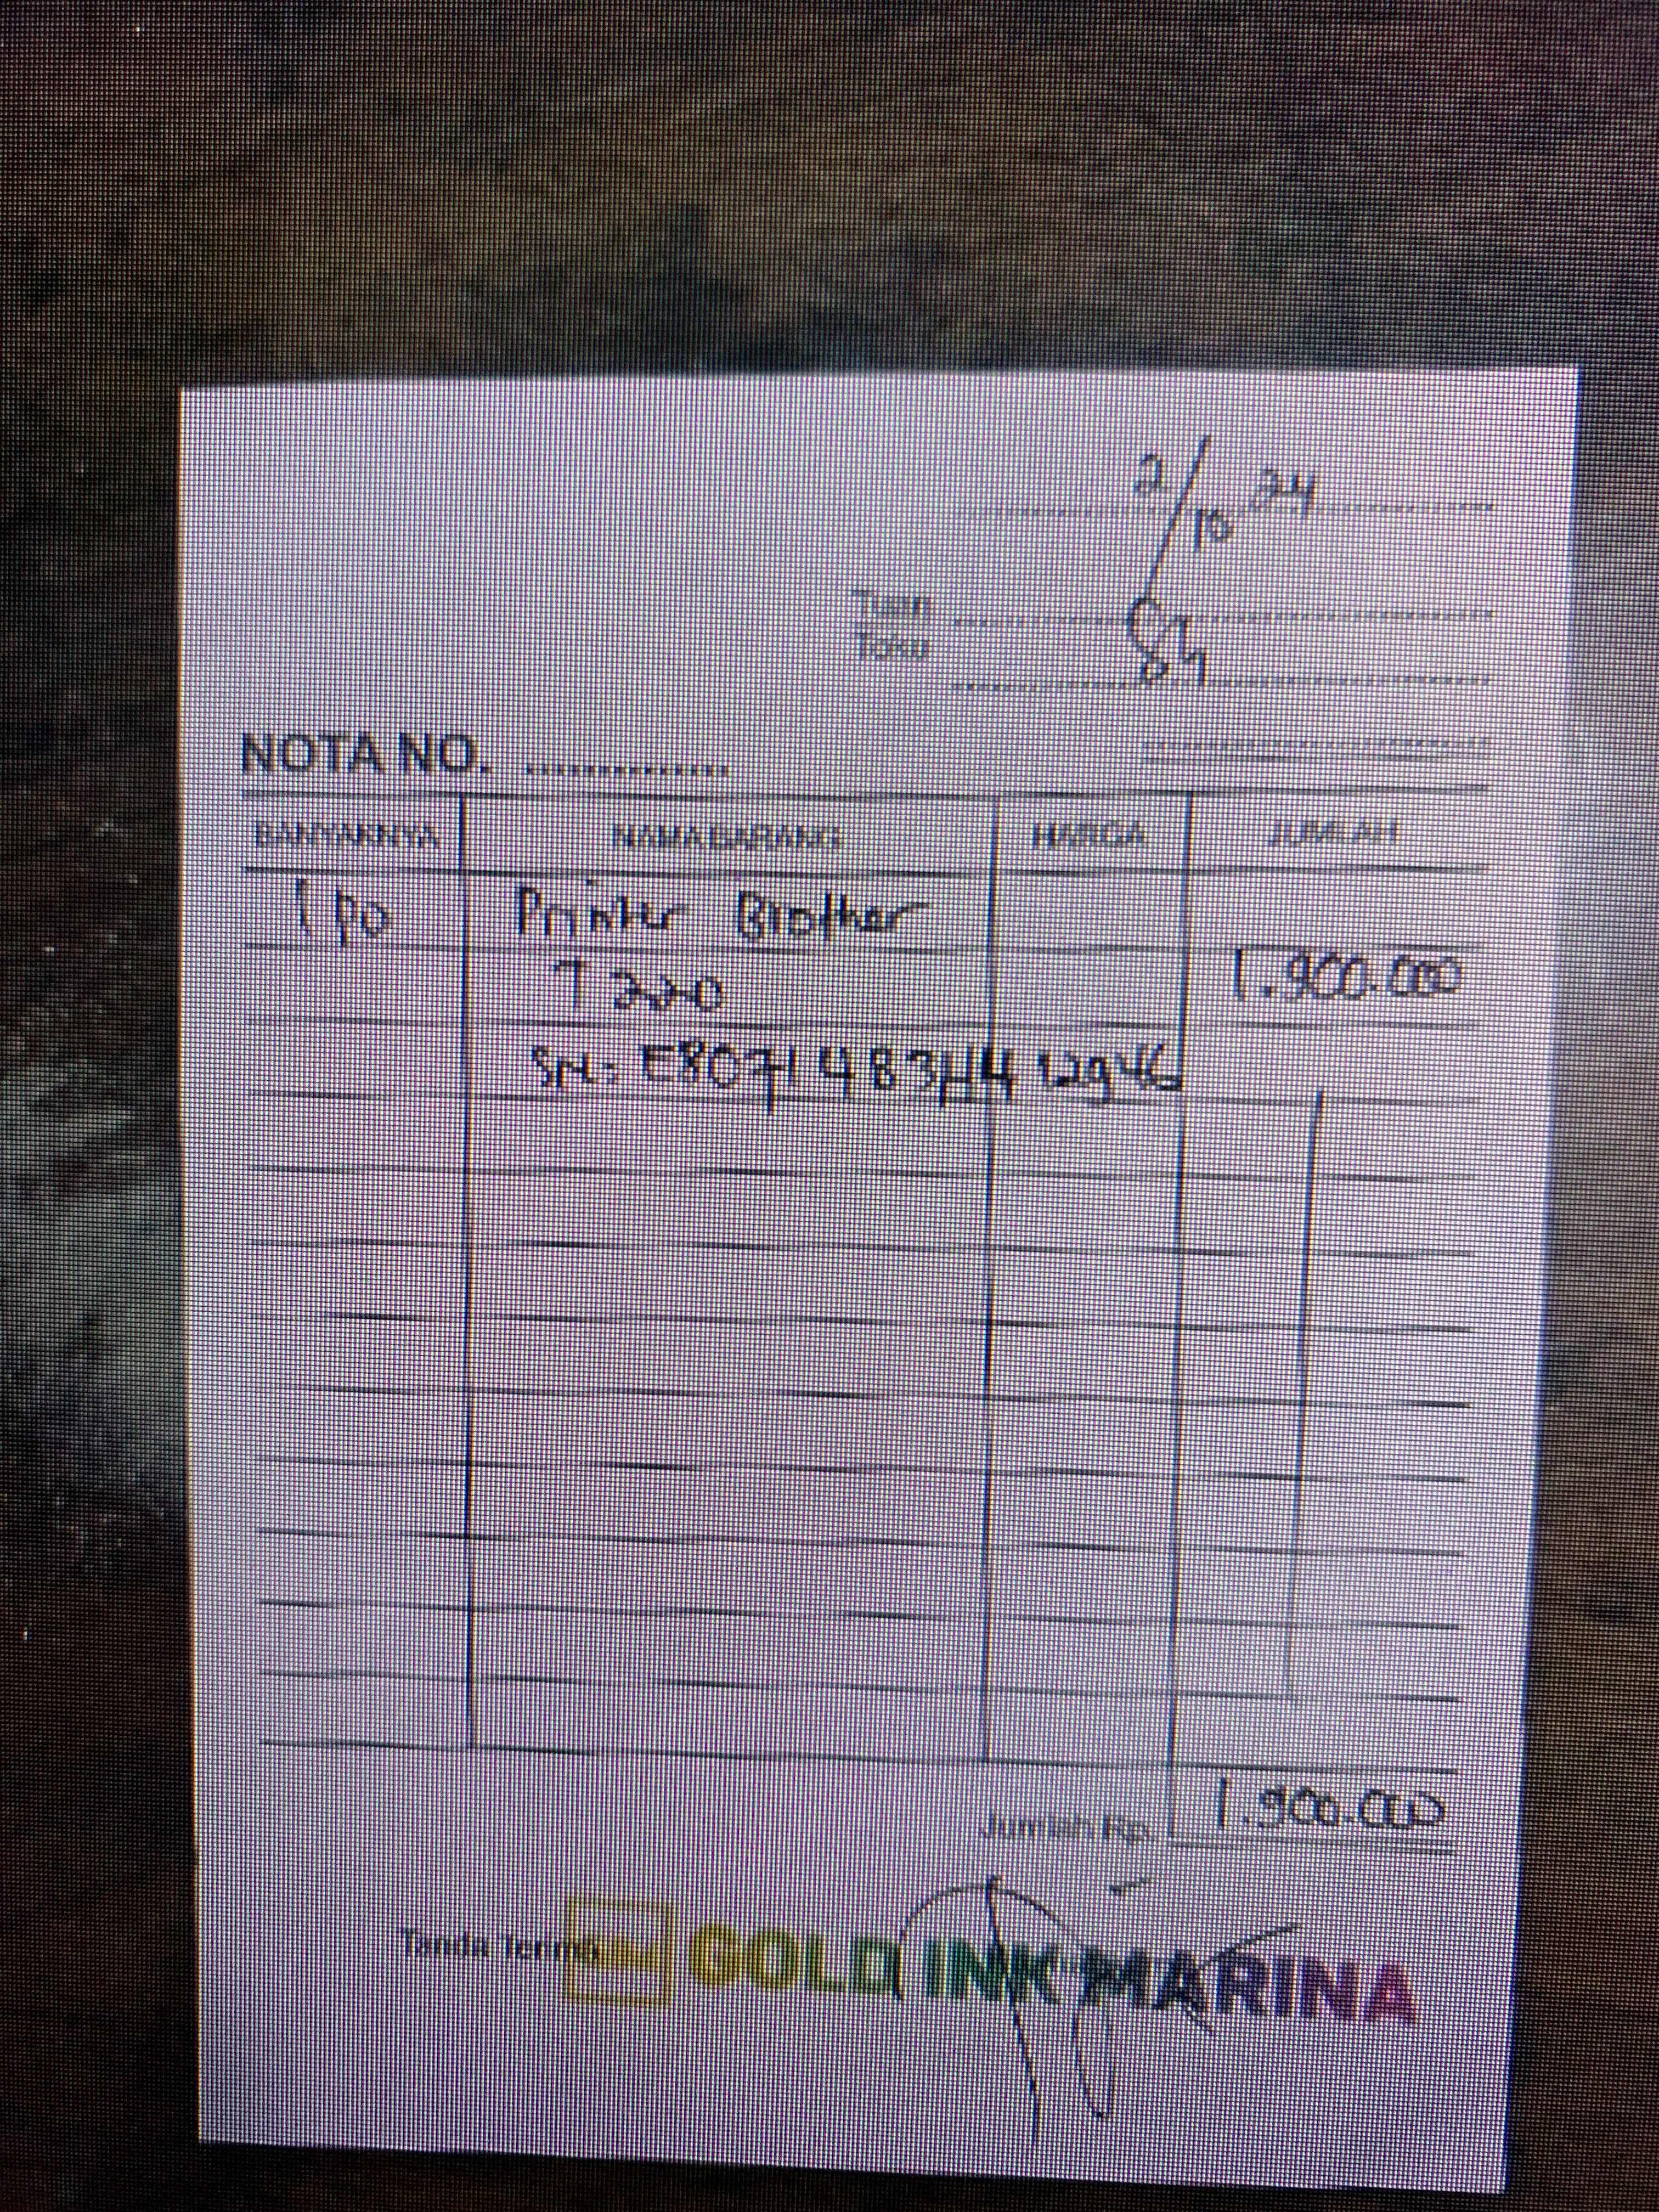 2/10 24
Tuan
Toko
NOTA NO. ..............
BANYAKNYA NAMA BARANG HARGA JUMLAH
1 pc Printer Brother
T220 1.900.000
SN: E80714834H412946
Jumlah Rp. 1.900.000
Tanda Terima GOLD INK MARINA